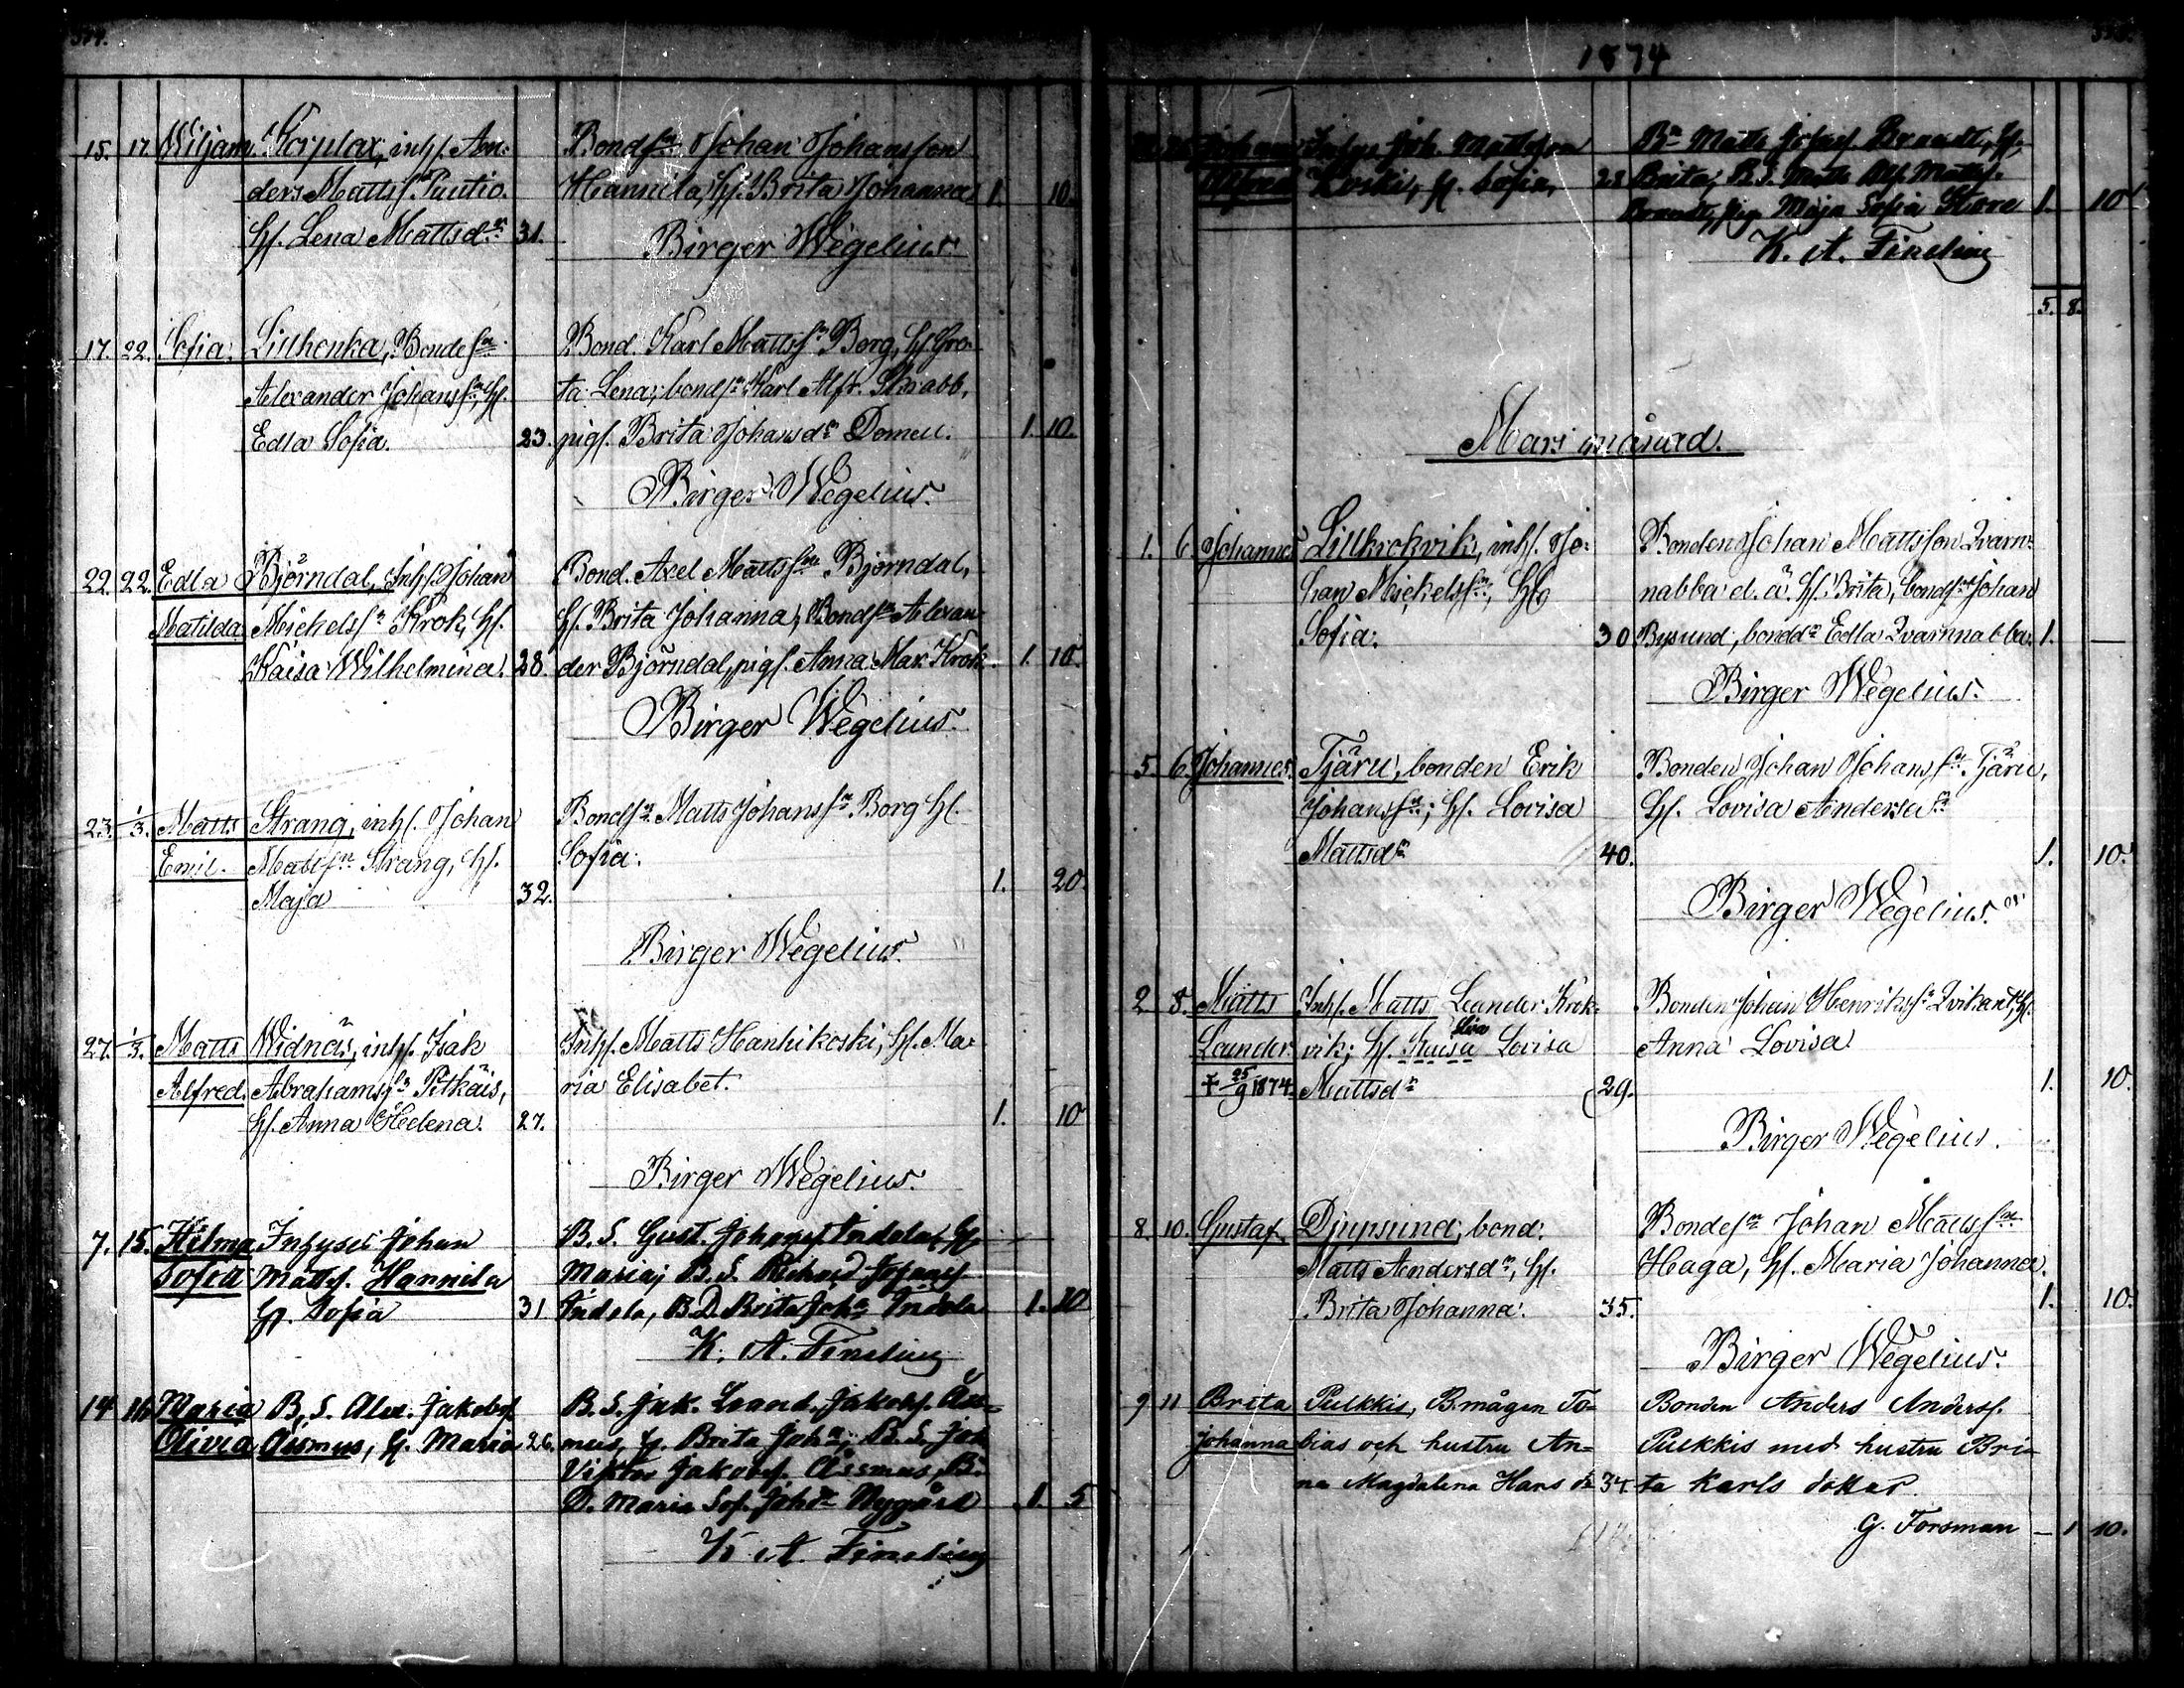 15. 17. Wiljam. Korplax, inhs. An-
ders Mattsn Puutio.
Hs. Lena Mattsdr 31.
Bondsn. Johan Johansson
Hannila, Hs. Brita Johanna. 1. 10.
Birger Wegelius.
17. 22. Sofia. Lillhonka, Bondesn
Alexander Johanssn, Hs.
Edla Sofia. 23.
Bond. Karl Mattssn Borg, Hs Gre-
ta Lena; bondsn Karl Alfr. Skrabb,
pigs. Brita Johansdr Domell. 1. 10.
Birger Wegelius.
22. 22. Edla Björndal, Inhs. Johan
Matilda Michelssn Krok, Hs.
Kaisa Wilhelmina. 28.
Bond. Axel Mattssn Björndal,
Hs. Brita Johanna, Bondsn Alexan-
der Björndal, pigs. Anna Mar. Krok 1. 10.
Birger Wegelius.
23. 1/3. Matts Strang, inhs. Johan
Emil. Matssn Strang, Hs.
Maja 32.
Bondsn Matts Johanssn Borg Hs.
Sofia. 1. 20.
Birger Wegelius.
27. 1/3. Matts Widnäs, inhs. Isak
Alfred. Abrahamssn Pitkäis,
Hs. Anna Helena. 27.
Inhs. Matts Hanhikoski, Hs. Ma-
ria Elisabet. 1. 10
Birger Wegelius.
7. 15. Hilma Inhyses Johan
Sofia Mattss. Hannila
Hs. Sofia 31
B. S. Gust. Johanss Indola, Hs
Maria; B. S. Richard Johanss
Indola, B. D. Brita Johna Indola 1. 10
K. A. Fineling
14 16 Maria B. S. Alex. Jakobss
Olivia Assmus, H. Maria 26.
B. S. Jak. Leand. Jakobss. Ass-
mus, H. Brita Joha; B. S. Joh
Viktor Jakobss. Assmus, B.
D. Maria Sof. Johdr Nygård 1. 5
K A. Fineling
1874
Alfred Koski, H. Sofia, 28
Bn Matts Johnss. Brandt, Hs.
Brita, B. S. Matts Alf. Mattss.
Brandt, Pig. Maja Sofia Stare 1. 10
K. A. Fineling
5. 8.
Mars månad.
1. 6 Johannes Lillkrokvik, inhs. Jo-
han Mickelssn, Hs
Sofia. 30
Bonden Johan Mattsson Qvarn-
nabba d. ä. Hs. Brita, bondsn Johan
Bysund, bondd. Edla Qvarnnabba. 1. —
Birger Wegelius.
5 6 Johannes. Tjäru, bonden Erik
Johanssn; Hs. Lovisa
Mattsdr 40.
Bonden Johan Johanssn Tjäru,
Hs. Lovisa Andersdr 1. 10.
Birger Wegelius.
2 8. Matts Inhs. Matts Leander Krok-
Leander. vik; Hs. Kaisa Lovisa
+ 25/9 1874. Mattsdr 29.
Bonden Johan Henrikssn Qvikant, Hs.
Anna Lovisa 1. 10.
Birger Wegelius.
8. 10. Gustaf. Djupsund, bond.
Matts Andersdr, Hs.
Brita Johanna. 35.
Bondesn Johan Mattssn
Haga, Hs. Maria Johanna. 1. 10.
Birger Wegelius.
9 11 Brita Pulkkis, B. mågen To-
Johanna bias och hustru An-
na Magdalena Hans dr 34
Bonden Anders Anderss.
Pulkkis med hustru Bri-
ta Karls dotter.
G. Forsman — 1 10.